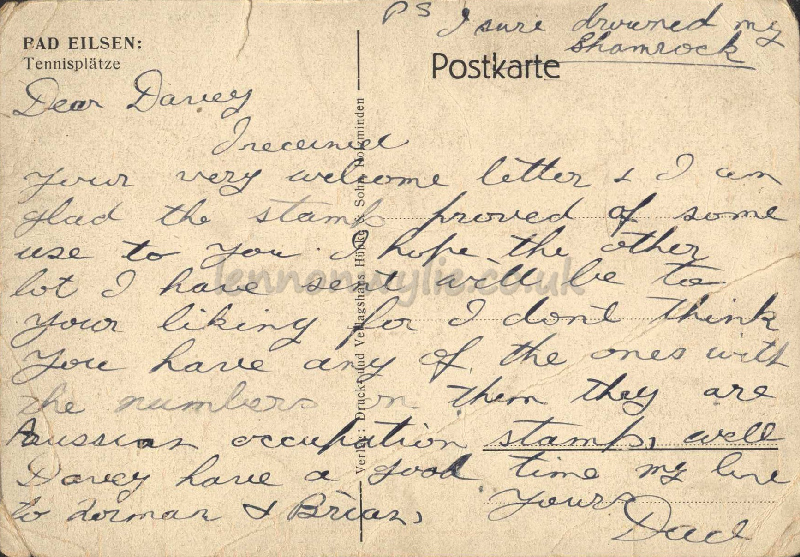 PS I sure drowned my
Shamrock
BAD EILSEN:
Tennisplätze
Postkarte
Dear Davey
I received
your very welcome letter & I am
glad the stamps proved of some
use to you I hope the other
lot I have sent will be to
your liking for I dont think
you have any of the ones with
the numbers on them they are
Russian occupation stamps, well
Davey have a good time my love
to Norman & Brian,
Yours
Dad
Verlag: Druck und Verlagshaus Hüpke & Sohn, Holzminden
lennonwylie.co.uk